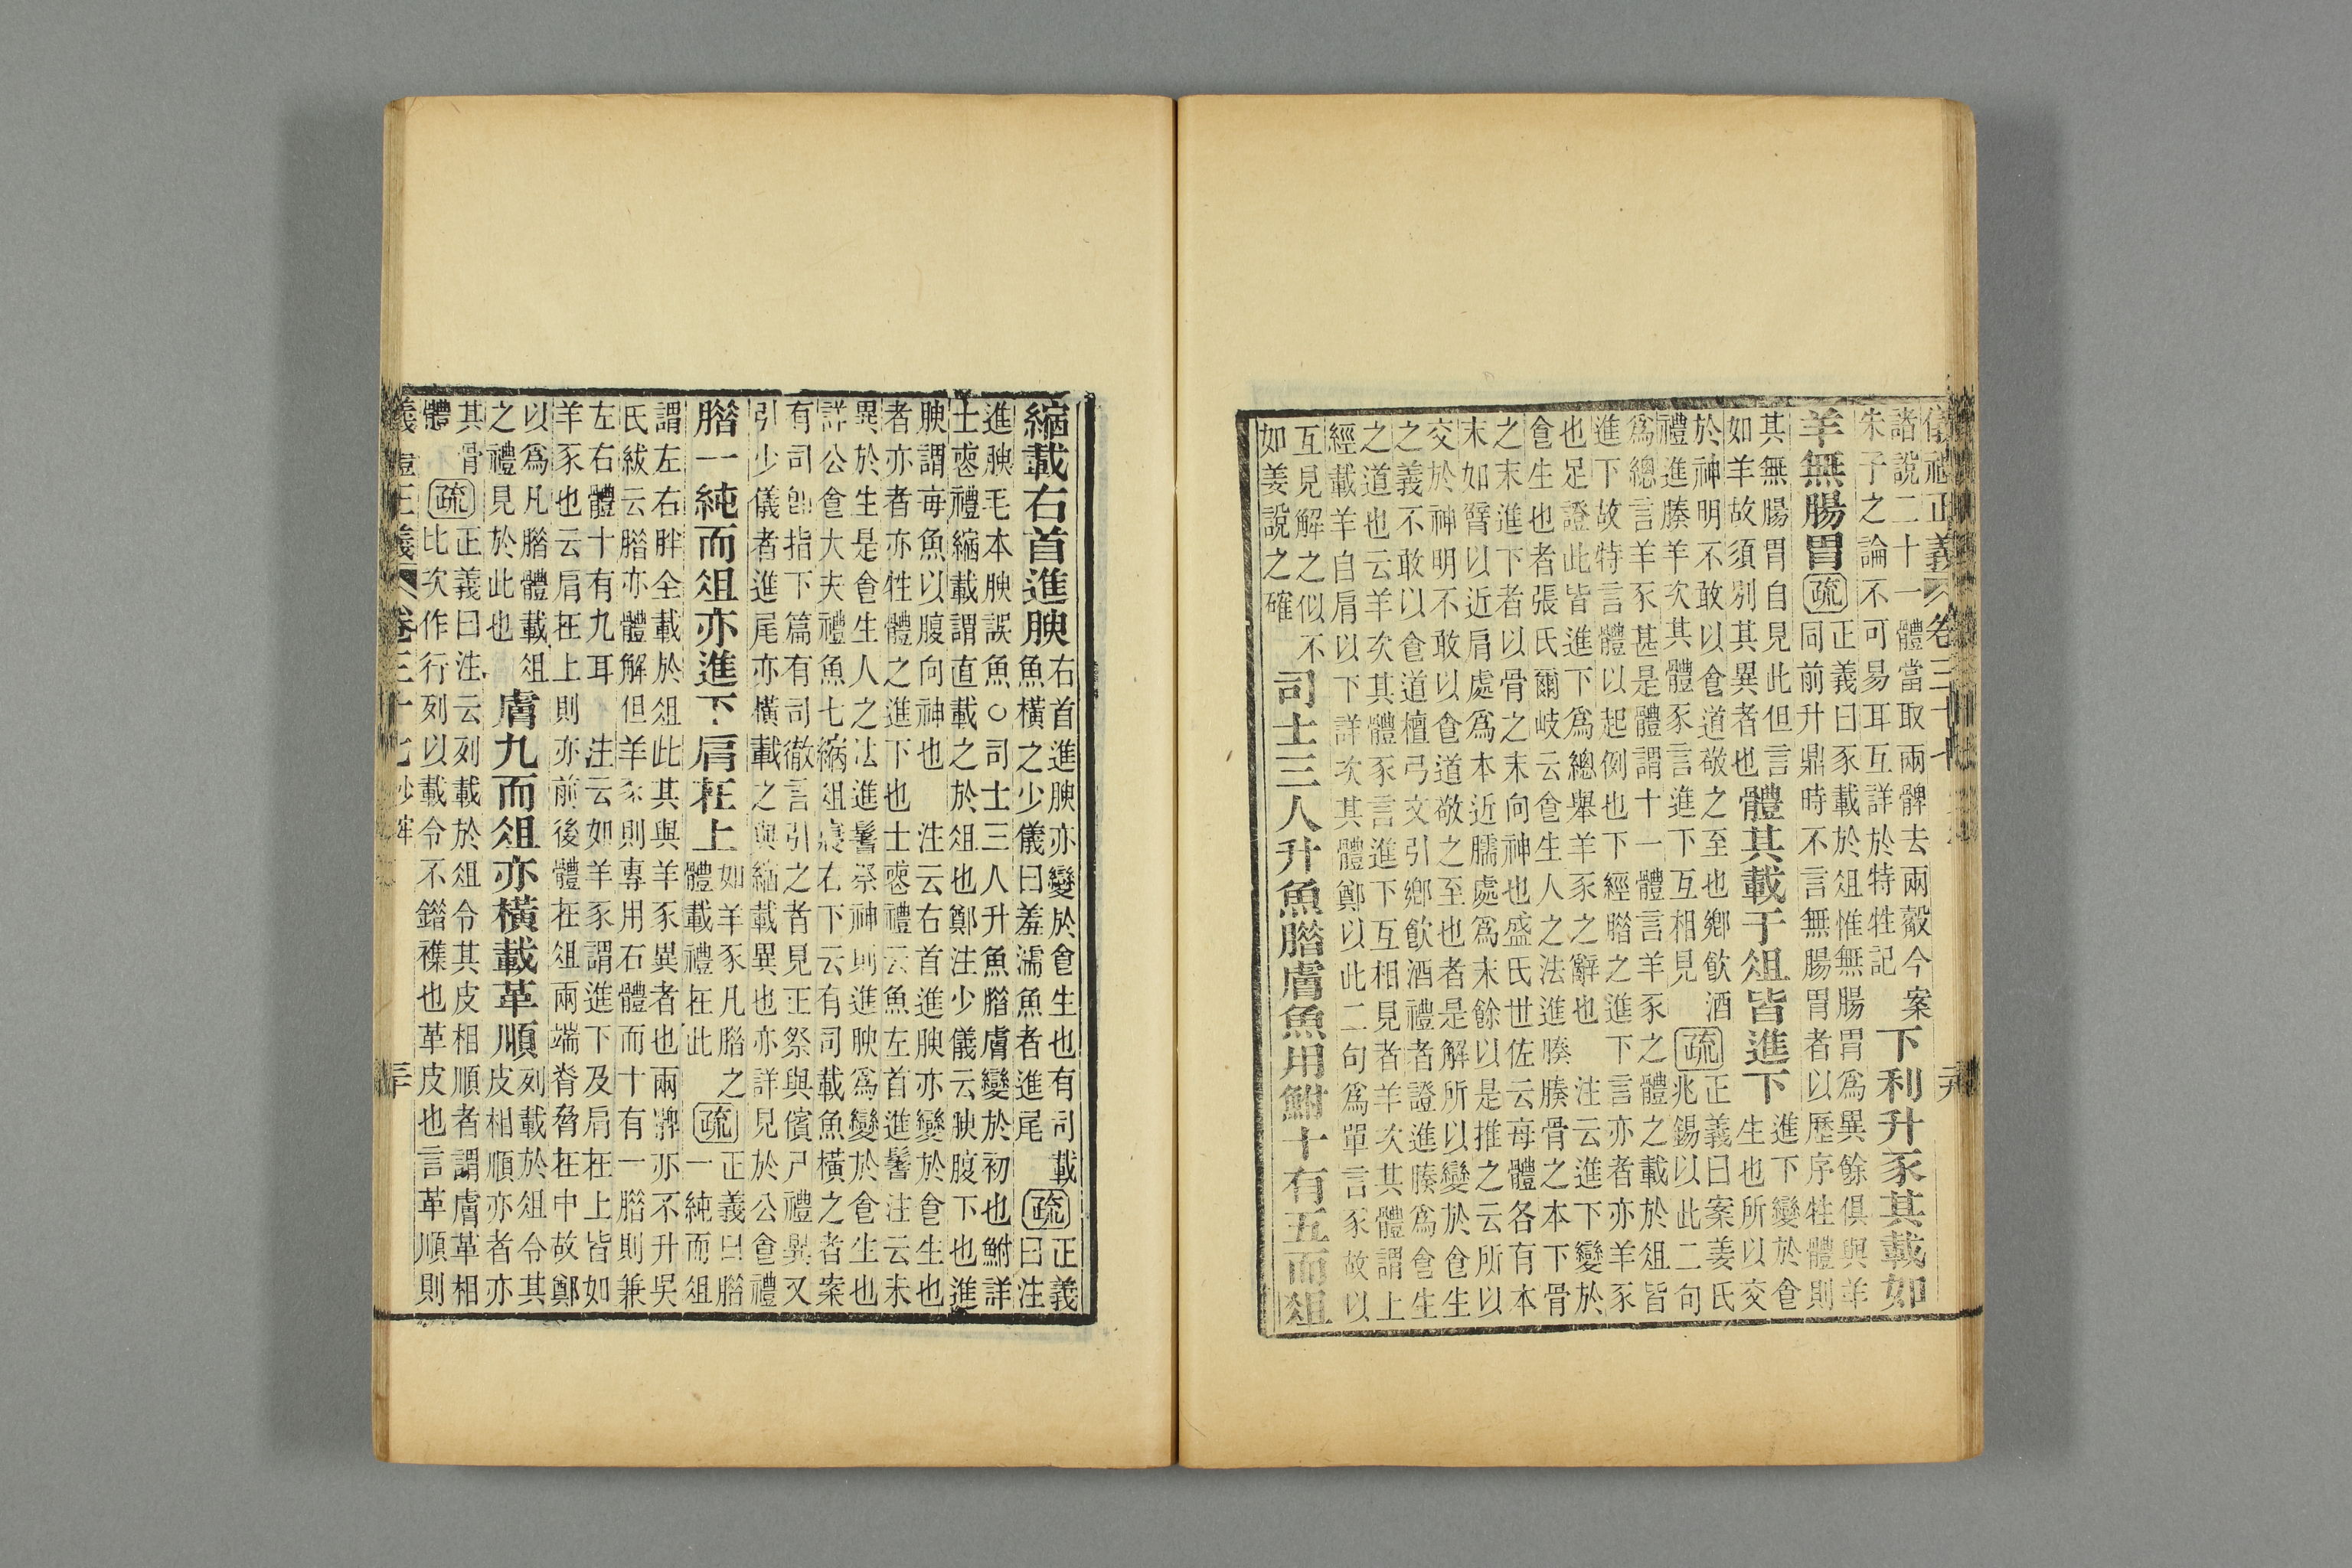 儀禮正義 卷三十七
諸說二十一體當取兩髀去兩觳今案
朱子之論不可易耳互詳於特牲記
下利升豕其載如
羊無腸胃
疏
正義曰豕載於俎惟無腸胃爲異餘俱與羊
同前升鼎時不言無腸胃者以歷序牲體則
其無腸胃自見此但言
如羊故須別其異者也
體其載于俎皆進下
進下變於食
生也所以交
於神明不敢以食道敬之至也鄉飲酒
禮進腠羊次其體豕言進下互相見
疏
正義曰案姜氏
兆錫以此二句
爲總言羊豕甚是體謂十一體言羊豕之體之載於俎皆
進下故特言體以起例也下經腊之進下言亦者亦羊豕
也足證此皆進下爲總舉羊豕之辭也 注云進下變於
食生也者張氏爾岐云食生人之法進腠腠骨之本下骨
之末進下者以骨之末向神也盛氏世佐云每體各有本
末如臂以近肩處爲本近臑處爲末餘以是推之云所以
交於神明不敢以食道敬之至也者是解所以變於食生
之義不敢以食道檀弓文引鄉飲酒禮者證進腠爲食生
之道也云羊次其體豕言進下互相見者羊次其體謂上
經載羊自肩以下詳次其體鄭以此二句爲單言豕故以
互見解之似不
如姜說之確
司士三人升魚腊膚魚用鮒十有五而俎
縮載右首進腴
右首進腴亦變於食生也有司載
魚橫之少儀曰羞濡魚者進尾
疏
正義
曰注
進腴毛本腴誤魚○司士三人升魚腊膚變於初也鮒詳
士喪禮縮載謂直載之於俎也鄭注少儀云腴腹下也進
腴謂每魚以腹向神也 注云右首進腴亦變於食生也
者亦者亦牲體之進下也士喪禮云魚左首進鬐注云未
異於生是食生人之法進鬐祭神則進腴爲變於食生也
詳公食大夫禮魚七縮俎寢右下云有司載魚橫之者案
有司卽指下篇有司徹言引之者見正祭與儐尸禮異又
引少儀者進尾亦橫載之與縮載異也亦詳見於公食禮
腊一純而俎亦進下肩在上
如羊豕凡腊之
體載禮在此
疏
正義曰腊
一純而俎
謂左右胖全載於俎此其與羊豕異者也兩髀亦不升吳
氏紱云腊亦體解但羊豕則專用右體而十有一腊則兼
左右體十有九耳 注云如羊豕謂進下及肩在上皆如
羊豕也云肩在上則亦前後體在俎兩端脊脅在中故鄭
以爲凡腊體載俎
之禮見於此也
膚九而俎亦橫載革順
列載於俎令其
皮相順亦者亦
其骨
體
疏
正義曰注云列載於俎令其皮相順者謂膚革相
比次作行列以載令不錯襍也革皮也言革順則
儀禮正義 卷三十七